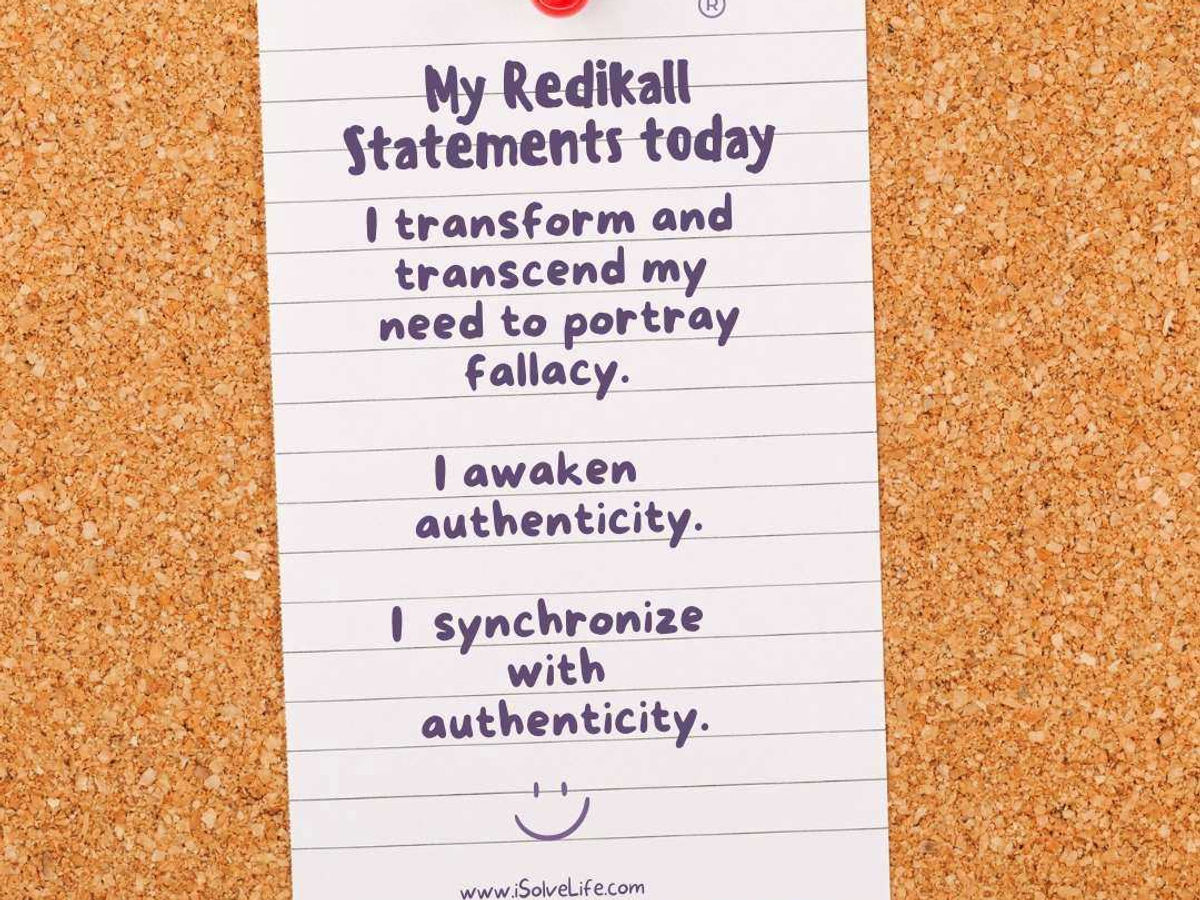 ®
My Redikall
Statements today
I transform and
transcend my
need to portray
fallacy.
I awaken
authenticity.
I synchronize
with
authenticity.
www.iSolveLife.com